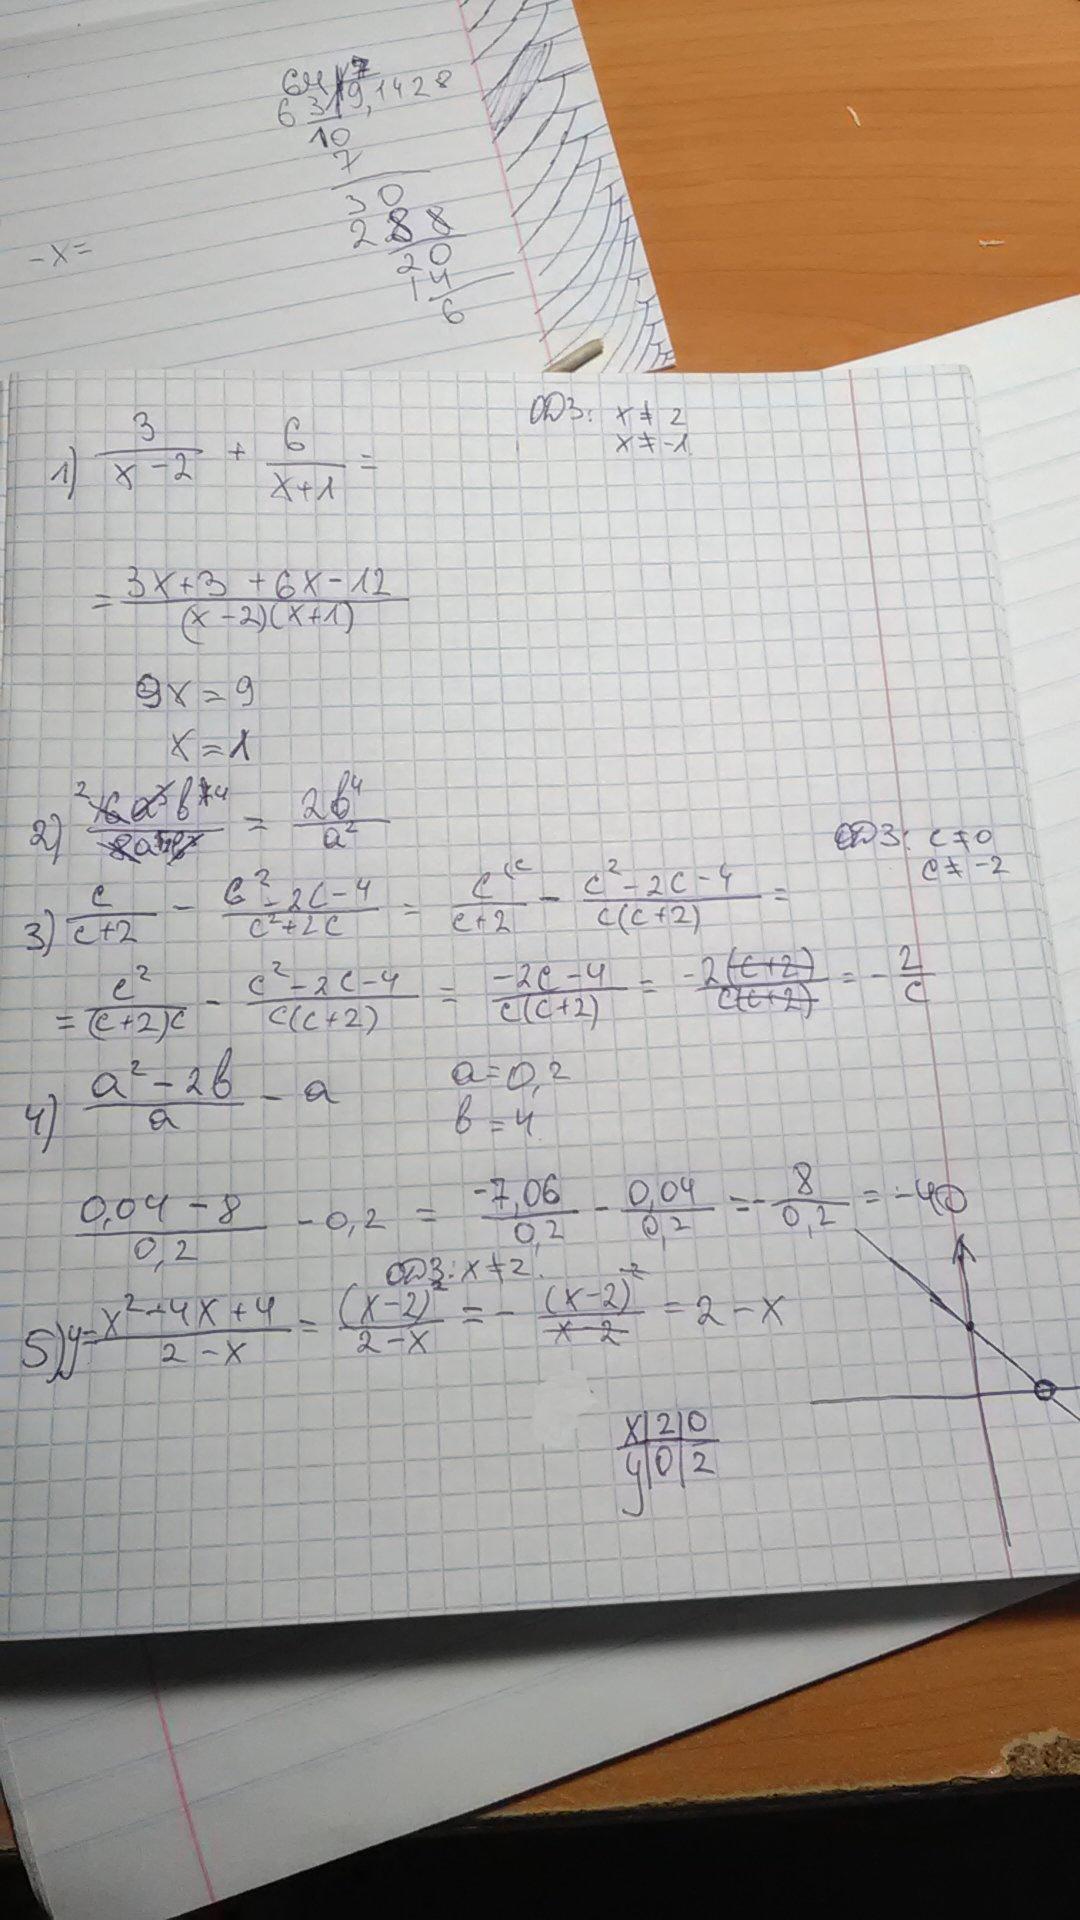 64 7
6 3 9,1428
10
7
30
28 8
20
14
6
-x=
ОДЗ: x ≠ 2
x ≠ -1
1) 3/(x-2) + 6/(x+1) =
= (3x+3+6x-12)/((x-2)(x+1))
9x = 9
x = 1
2) = 2b⁴/a²
ОДЗ: c ≠ 0
c ≠ -2
3) c/(c+2) - (c²-2c-4)/(c²+2c) = c^(c/(c+2) - (c²-2c-4)/(c(c+2)) =
= c²/((c+2)c) - (c²-2c-4)/(c(c+2)) = (-2c-4)/(c(c+2)) = -2(c+2)/(c(c+2)) = -2/c
4) (a²-2b)/a - a a=0,2
b=4
(0,04-8)/0,2 - 0,2 = -7,06/0,2 - 0,04/0,2 = -8/0,2 = -40
ОДЗ: x ≠ 2.
5) y = (x²-4x+4)/(2-x) = (x-2)²/(2-x) = -(x-2)²/(x-2) = 2-x
x|2|0
y|0|2